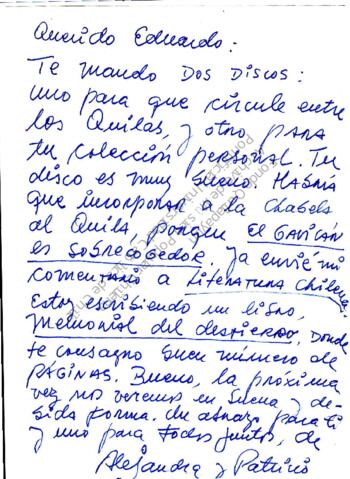 Querido Eduardo:
Te mando DOS DISCOS:
uno para que circule entre
los Quilas, y otro, PARA
tu colección personal. Tu
disco es muy bueno. HABRÍA
que incorporar a la Chabela
al Quila, porque EL GAVILÁN
es SOBRECOGEDOR. Ya envié mi
comentario a Literatura Chilena.
Estoy escribiendo un libro,
Memorial del destierro, donde
te consagro buen número de
PÁGINAS. Bueno, la próxima
vez nos veremos en buena y de-
bida forma. Un abrazo para ti
y uno para todos juntos, de
Alejandra y Patricio